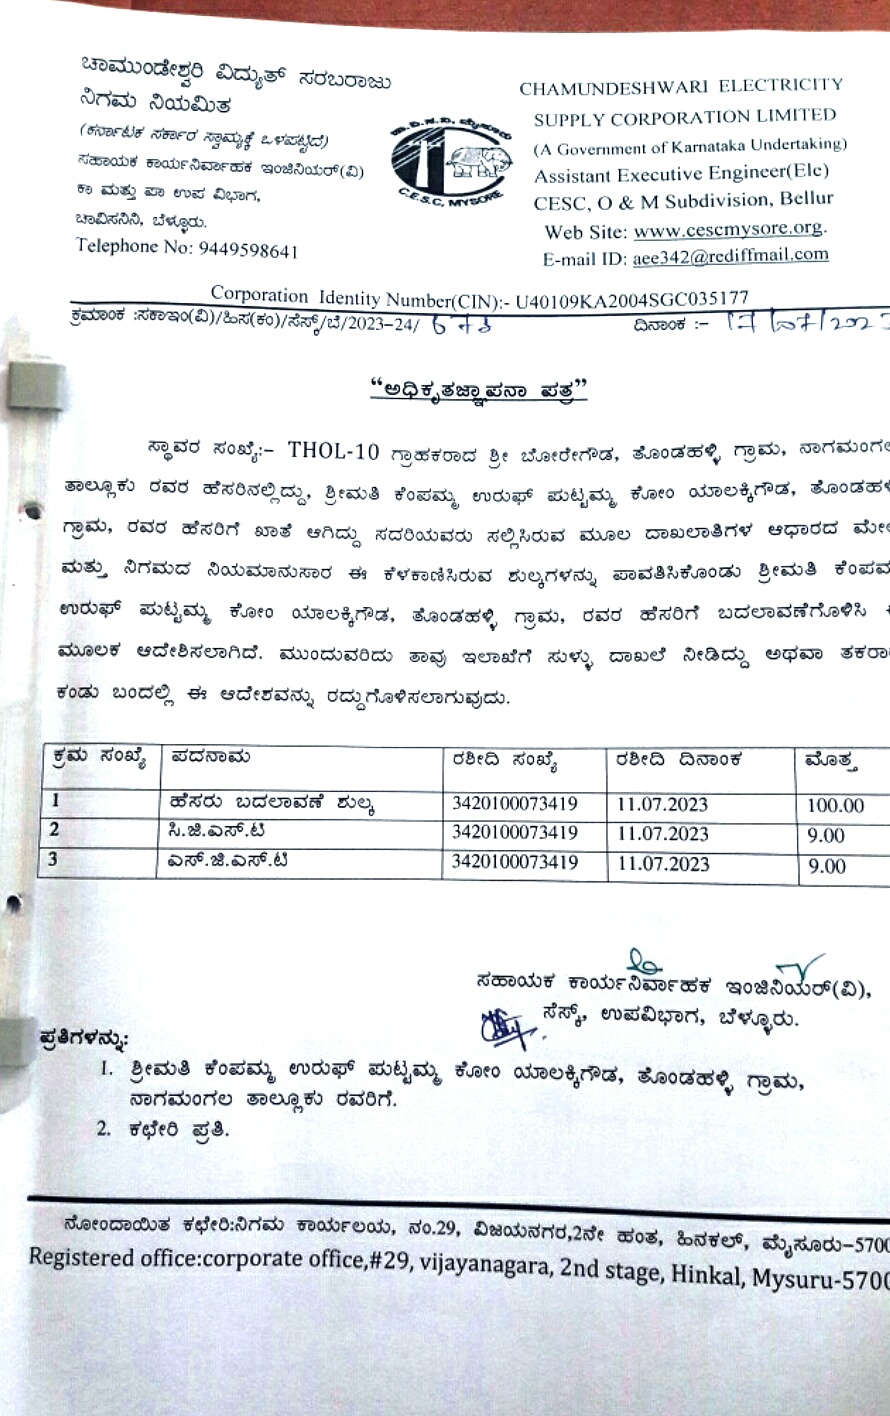 ಚಾಮುಂಡೇಶ್ವರಿ ವಿದ್ಯುತ್ ಸರಬರಾಜು
ನಿಗಮ ನಿಯಮಿತ
(ಕರ್ನಾಟಕ ಸರ್ಕಾರ ಸ್ವಾಮ್ಯಕ್ಕೆ ಒಳಪಟ್ಟದೆ)
ಸಹಾಯಕ ಕಾರ್ಯನಿರ್ವಾಹಕ ಇಂಜಿನಿಯರ್(ವಿ)
ಕಾ ಮತ್ತು ಪಾ ಉಪ ವಿಭಾಗ,
ಚಾವಿಸನಿನಿ, ಬೆಳ್ಳೂರು.
Telephone No: 9449598641
C.E.S.C, MYSORE
CHAMUNDESHWARI ELECTRICITY
SUPPLY CORPORATION LIMITED
(A Government of Karnataka Undertaking)
Assistant Executive Engineer(Ele)
CESC, O & M Subdivision, Bellur
Web Site: www.cescmysore.org.
E-mail ID: aee342@rediffmail.com
Corporation Identity Number(CIN):- U40109KA2004SGC035177
ಕ್ರಮಾಂಕ :ಸಕಾಇಂ(ವಿ)/ಹಿಸ(ಕಂ)/ಸೆಸ್ಕ್/ಬೆ/2023-24/ ದಿನಾಂಕ :-
“ಅಧಿಕೃತಜ್ಞಾಪನಾ ಪತ್ರ”
ಸ್ಥಾವರ ಸಂಖ್ಯೆ:- THOL-10 ಗ್ರಾಹಕರಾದ ಶ್ರೀ ಬೋರೇಗೌಡ, ತೊಂಡಹಳ್ಳಿ ಗ್ರಾಮ, ನಾಗಮಂಗಲ
ತಾಲ್ಲೂಕು ರವರ ಹೆಸರಿನಲ್ಲಿದ್ದು, ಶ್ರೀಮತಿ ಕೆಂಪಮ್ಮ ಉರುಫ್ ಪುಟ್ಟಮ್ಮ ಕೋಂ ಯಾಲಕ್ಕಿಗೌಡ,
ಗ್ರಾಮ, ರವರ ಹೆಸರಿಗೆ ಖಾತೆ ಆಗಿದ್ದು ಸದರಿಯವರು ಸಲ್ಲಿಸಿರುವ ಮೂಲ ದಾಖಲಾತಿಗಳ ಆಧಾರದ
ಮತ್ತು ನಿಗಮದ ನಿಯಮಾನುಸಾರ ಈ ಕೆಳಕಾಣಿಸಿರುವ ಶುಲ್ಕಗಳನ್ನು ಪಾವತಿಸಿಕೊಂಡು ಶ್ರೀಮತಿ
ಉರುಫ್ ಪುಟ್ಟಮ್ಮ ಕೋಂ ಯಾಲಕ್ಕಿಗೌಡ, ತೊಂಡಹಳ್ಳಿ ಗ್ರಾಮ, ರವರ ಹೆಸರಿಗೆ ಬದಲಾವಣೆಗೊಳಿಸಿ
ಮೂಲಕ ಆದೇಶಿಸಲಾಗಿದೆ. ಮುಂದುವರಿದು ತಾವು ಇಲಾಖೆಗೆ ಸುಳ್ಳು ದಾಖಲೆ ನೀಡಿದ್ದು ಅಥವಾ
ಕಂಡು ಬಂದಲ್ಲಿ ಈ ಆದೇಶವನ್ನು ರದ್ದುಗೊಳಿಸಲಾಗುವುದು.
ಕ್ರಮ ಸಂಖ್ಯೆ ಪದನಾಮ ರಶೀದಿ ಸಂಖ್ಯೆ ರಶೀದಿ ದಿನಾಂಕ ಮೊತ್ತ
1 ಹೆಸರು ಬದಲಾವಣೆ ಶುಲ್ಕ 3420100073419 11.07.2023 100.00
2 ಸಿ.ಜಿ.ಎಸ್.ಟಿ 3420100073419 11.07.2023 9.00
3 ಎಸ್.ಜಿ.ಎಸ್.ಟಿ 3420100073419 11.07.2023 9.00
ಸಹಾಯಕ ಕಾರ್ಯನಿರ್ವಾಹಕ ಇಂಜಿನಿಯರ್(ವಿ),
ಸೆಸ್ಕ್, ಉಪವಿಭಾಗ, ಬೆಳ್ಳೂರು.
ಪ್ರತಿಗಳನ್ನು:
1. ಶ್ರೀಮತಿ ಕೆಂಪಮ್ಮ ಉರುಫ್ ಪುಟ್ಟಮ್ಮ ಕೋಂ ಯಾಲಕ್ಕಿಗೌಡ, ತೊಂಡಹಳ್ಳಿ ಗ್ರಾಮ,
ನಾಗಮಂಗಲ ತಾಲ್ಲೂಕು ರವರಿಗೆ.
2. ಕಛೇರಿ ಪ್ರತಿ.
ನೋಂದಾಯಿತ ಕಛೇರಿ:ನಿಗಮ ಕಾರ್ಯಲಯ, ನಂ.29, ವಿಜಯನಗರ,2ನೇ ಹಂತ, ಹಿನಕಲ್, ಮೈಸೂರು-5700
Registered office:corporate office,#29, vijayanagara, 2nd stage, Hinkal, Mysuru-5700